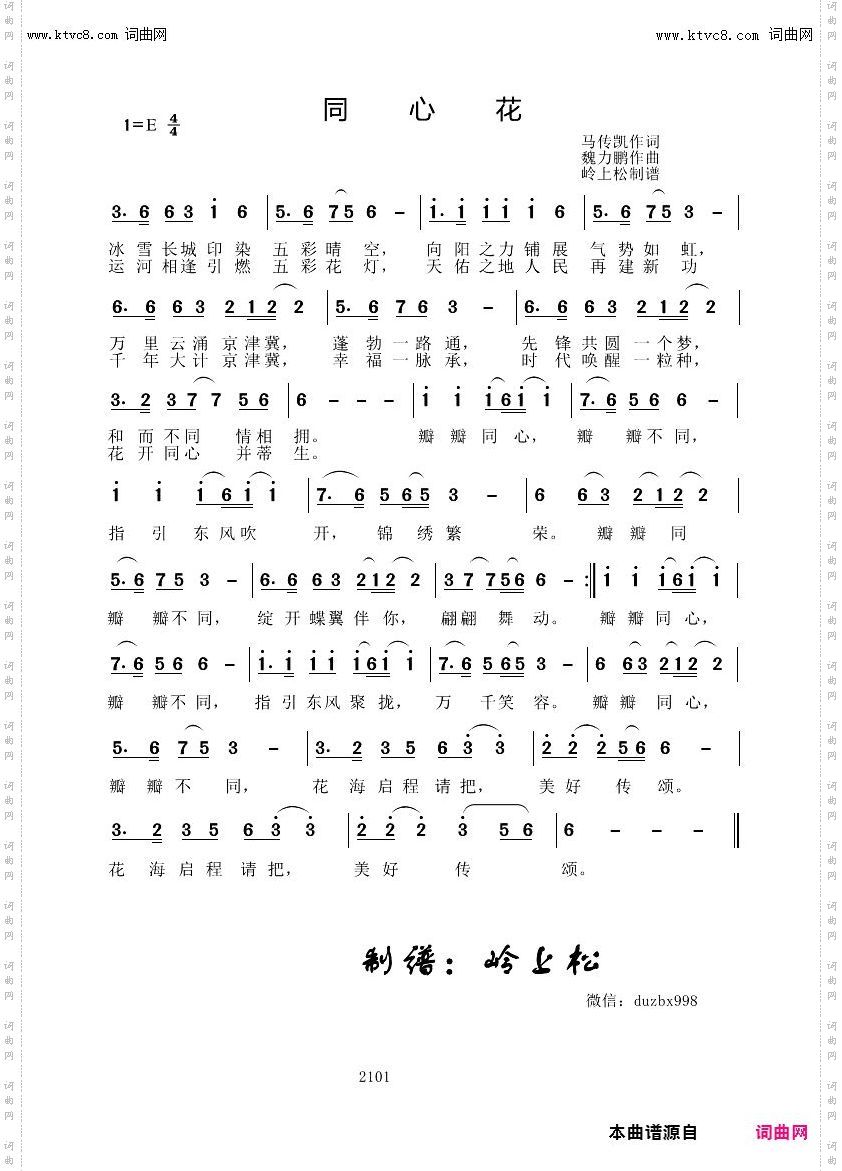 www.ktvc8.com 词曲网
www.ktvc8.com 词曲网
同 心 花
1=E 4/4
马传凯作词
魏力鹏作曲
岭上松制谱
3. 6 6 3 i 6 | 5. 6 7 5 6 - | i. i i i i 6 | 5. 6 7 5 3 - |
冰 雪 长 城 印 染 五 彩 晴 空， 向 阳 之 力 铺 展 气 势 如 虹，
运 河 相 逢 引 燃 五 彩 花 灯， 天 佑 之 地 人 民 再 建 新 功
6. 6 6 3 2 1 2 2 | 5. 6 7 6 3 - | 6. 6 6 3 2 1 2 2 |
万 里 云 涌 京 津 冀， 蓬 勃 一 路 通， 先 锋 共 圆 一 个 梦，
千 年 大 计 京 津 冀， 幸 福 一 脉 承， 时 代 唤 醒 一 粒 种，
3. 2 3 7 7 5 6 | 6 - - - | i i i 6 i i | 7. 6 5 6 6 - |
和 而 不 同 情 相 拥。 瓣 瓣 同 心， 瓣 瓣 不 同，
花 开 同 心 并 蒂 生。
i i i 6 i i | 7. 6 5 6 5 3 - | 6 6 3 2 1 2 2 |
指 引 东 风 吹 开， 锦 绣 繁 荣。 瓣 瓣 同
5. 6 7 5 3 - | 6. 6 6 3 2 1 2 2 | 3 7 7 5 6 6 - :|| i i i 6 i i |
瓣 瓣 不 同， 绽 开 蝶 翼 伴 你， 翩 翩 舞 动。 瓣 瓣 同 心，
7. 6 5 6 6 - | i. i i i i 6 i i | 7. 6 5 6 5 3 - | 6 6 3 2 1 2 2 |
瓣 瓣 不 同， 指 引 东 风 聚 拢， 万 千 笑 容。 瓣 瓣 同 心，
5. 6 7 5 3 - | 3. 2 3 5 6 3 3 | 2 2 2 5 6 6 - |
瓣 瓣 不 同， 花 海 启 程 请 把， 美 好 传 颂。
3. 2 3 5 6 3 3 | 2 2 2 3 5 6 | 6 - - - ||
花 海 启 程 请 把， 美 好 传 颂。
制谱：岭上松
微信：duzbx998
2101
本曲谱源自 词曲网